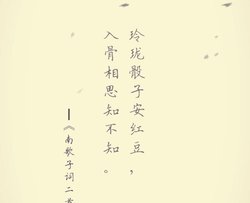 玲珑骰子安红豆，
入骨相思知不知。
—《南歌子词二首